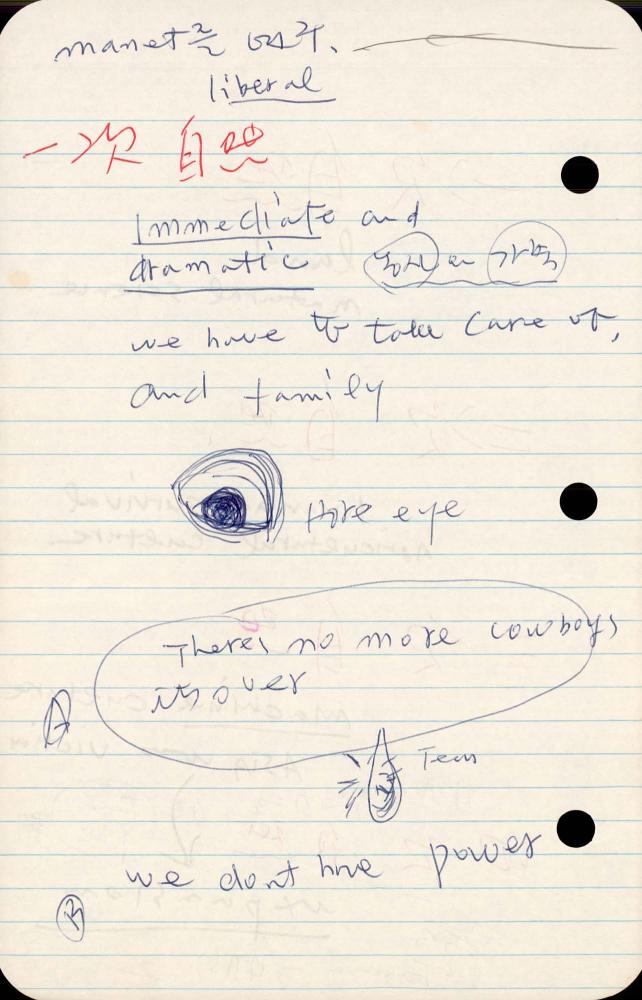 manet를
liberal
一次 自然
Immediate and
dramatic 농사와 가축
we have to take care of,
and family
Hore eye
There's no more cowboys
it's over
A
Tears
we dont have power
B